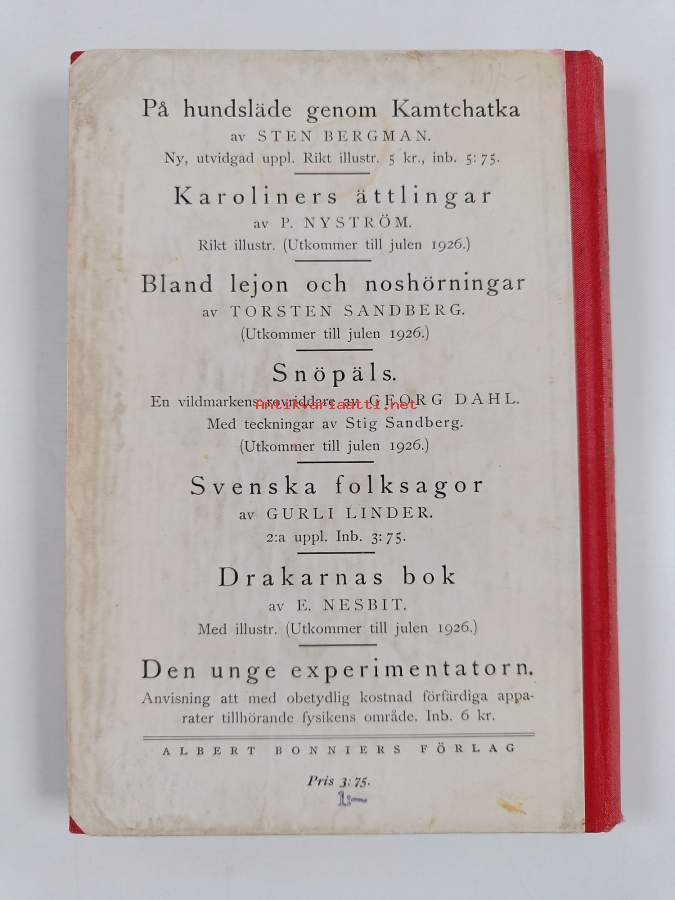 På hundsläde genom Kamtchatka
av STEN BERGMAN.
Ny, utvidgad uppl. Rikt illustr. 5 kr., inb. 5: 75.
Karoliners ättlingar
av P. NYSTRÖM.
Rikt illustr. (Utkommer till julen 1926.)
Bland lejon och noshörningar
av TORSTEN SANDBERG.
(Utkommer till julen 1926.)
Snöpäls.
En vildmarkens rovriddare av GEORG DAHL.
Antikvariaatti.net
Med teckningar av Stig Sandberg.
(Utkommer till julen 1926.)
Svenska folksagor
av GURLI LINDER.
2:a uppl. Inb. 3: 75.
Drakarnas bok
av E. NESBIT.
Med illustr. (Utkommer till julen 1926.)
Den unge experimentatorn.
Anvisning att med obetydlig kostnad förfärdiga appa-
rater tillhörande fysikens område. Inb. 6 kr.
ALBERT BONNIERS FÖRLAG
Pris 3: 75.
1:—